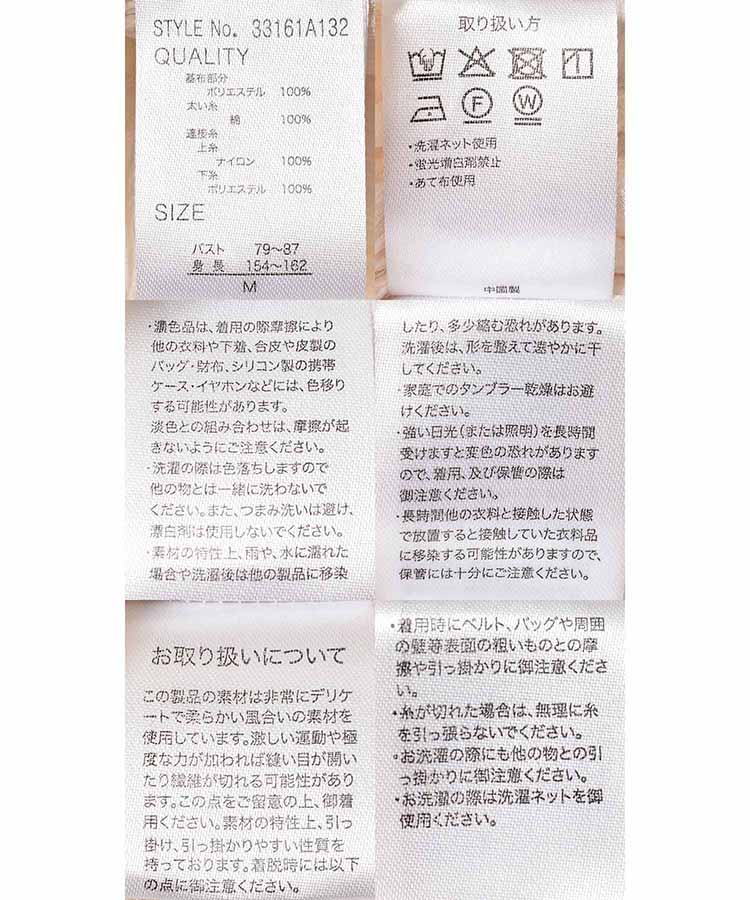 STYLE No. 33161A132
QUALITY
基布部分
ポリエステル 100%
太い糸
綿 100%
連接糸
上糸
ナイロン 100%
下糸
ポリエステル 100%
SIZE
バスト 79〜87
身長 154〜162
M
取り扱い方
F
W
・洗濯ネット使用
・蛍光増白剤禁止
・あて布使用
中国製
・濃色品は、着用の際摩擦により
他の衣料や下着、合皮や皮製の
バッグ・財布、シリコン製の携帯
ケース・イヤホンなどには、色移り
する可能性があります。
淡色との組み合わせは、摩擦が起
きないようにご注意ください。
・洗濯の際は色落ちしますので
他の物とは一緒に洗わないで
ください。また、つまみ洗いは避け、
漂白剤は使用しないでください。
・素材の特性上、雨や、水に濡れた
場合や洗濯後は他の製品に移染
したり、多少縮む恐れがあります。
洗濯後は、形を整えて速やかに干
してください。
・家庭でのタンブラー乾燥はお避
けください。
・強い日光(または照明)を長時間
受けますと変色の恐れがあります
ので、着用、及び保管の際は
御注意ください。
・長時間他の衣料と接触した状態
で放置すると接触していた衣料品
に移染する可能性がありますので、
保管には十分にご注意ください。
お取り扱いについて
この製品の素材は非常にデリケ
ートで柔らかい風合いの素材を
使用しています。激しい運動や極
度な力が加われば縫い目が開い
たり繊維が切れる可能性があり
ます。この点をご留意の上、御着
用ください。素材の特性上、引っ
掛け、引っ掛かりやすい性質を
持っております。着脱時には以下
の点に御注意ください。
・着用時にベルト、バッグや周囲
の壁等表面の粗いものとの摩
擦や引っ掛かりに御注意くださ
い。
・糸が切れた場合は、無理に糸
を引っ張らないでください。
・お洗濯の際にも他の物との引
っ掛かりに御注意ください。
・お洗濯の際は洗濯ネットを御
使用ください。